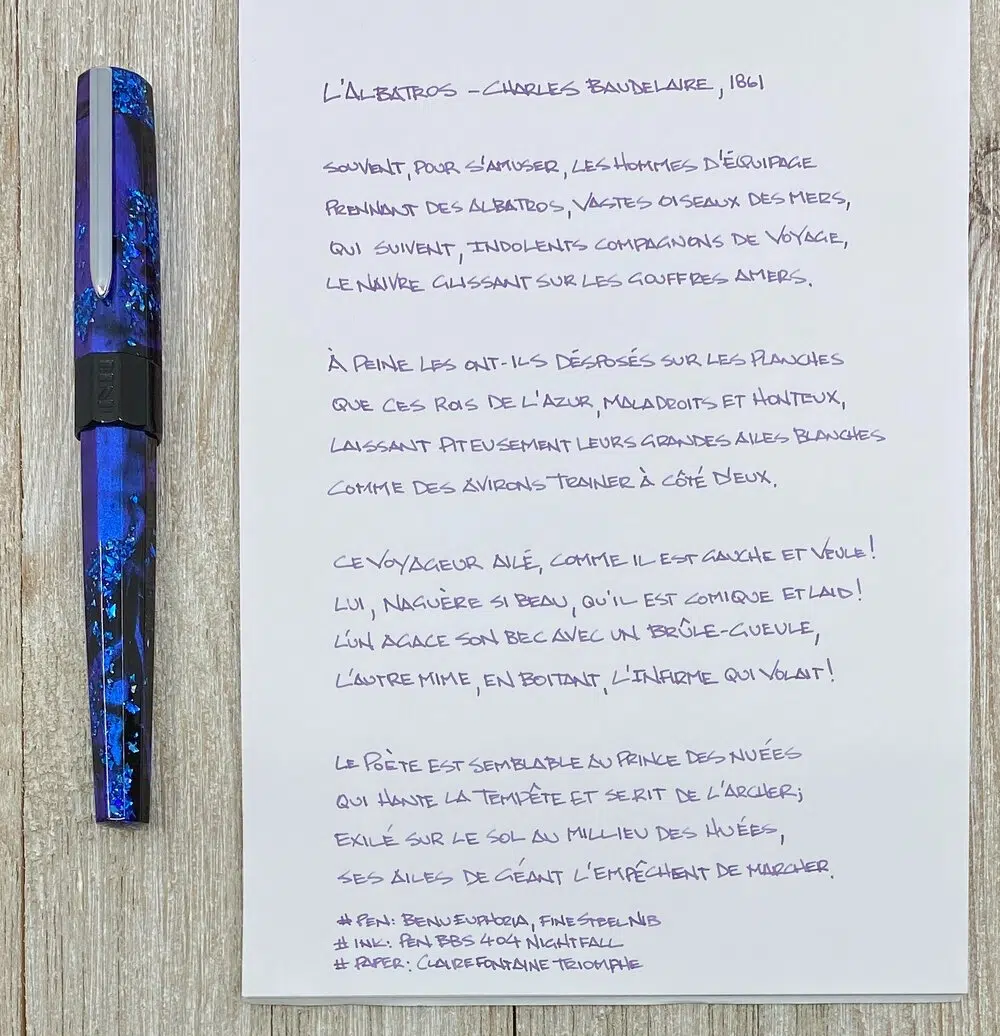 L'ALBATROS - CHARLES BAUDELAIRE, 1861
SOUVENT, POUR S'AMUSER, LES HOMMES D'ÉQUIPAGE
PRENNANT DES ALBATROS, VASTES OISEAUX DES MERS,
QUI SUIVENT, INDOLENTS COMPAGNONS DE VOYAGE,
LE NAIVRE GLISSANT SUR LES GOUFFRES AMERS.
À PEINE LES ONT-ILS DÉSPOSÉS SUR LES PLANCHES
QUE CES ROIS DE L'AZUR, MALADROITS ET HONTEUX,
LAISSANT PITEUSEMENT LEURS GRANDES AILES BLANCHES
COMME DES AVIRONS TRAINER À CÔTÉ D'EUX.
CE VOYAGEUR AILÉ, COMME IL EST GAUCHE ET VEULE!
LUI, NAGUÈRE SI BEAU, QU'IL EST COMIQUE ET LAID!
L'UN AGACE SON BEC AVEC UN BRÛLE-GUEULE,
L'AUTRE MIME, EN BOITANT, L'INFIRME QUI VOLAIT!
LE POÈTE EST SEMBLABLE AU PRINCE DES NUÉES
QUI HANTE LA TEMPÊTE ET SE RIT DE L'ARCHER;
EXILÉ SUR LE SOL AU MILLIEU DES HUÉES,
SES AILES DE GÉANT L'EMPÊCHENT DE MARCHER.
# PEN: BENU EUPHORIA, FINE STEEL NIB
# INK: PEN BBS 404 NIGHTFALL
# PAPER: CLAIREFONTAINE TRIOMPHE